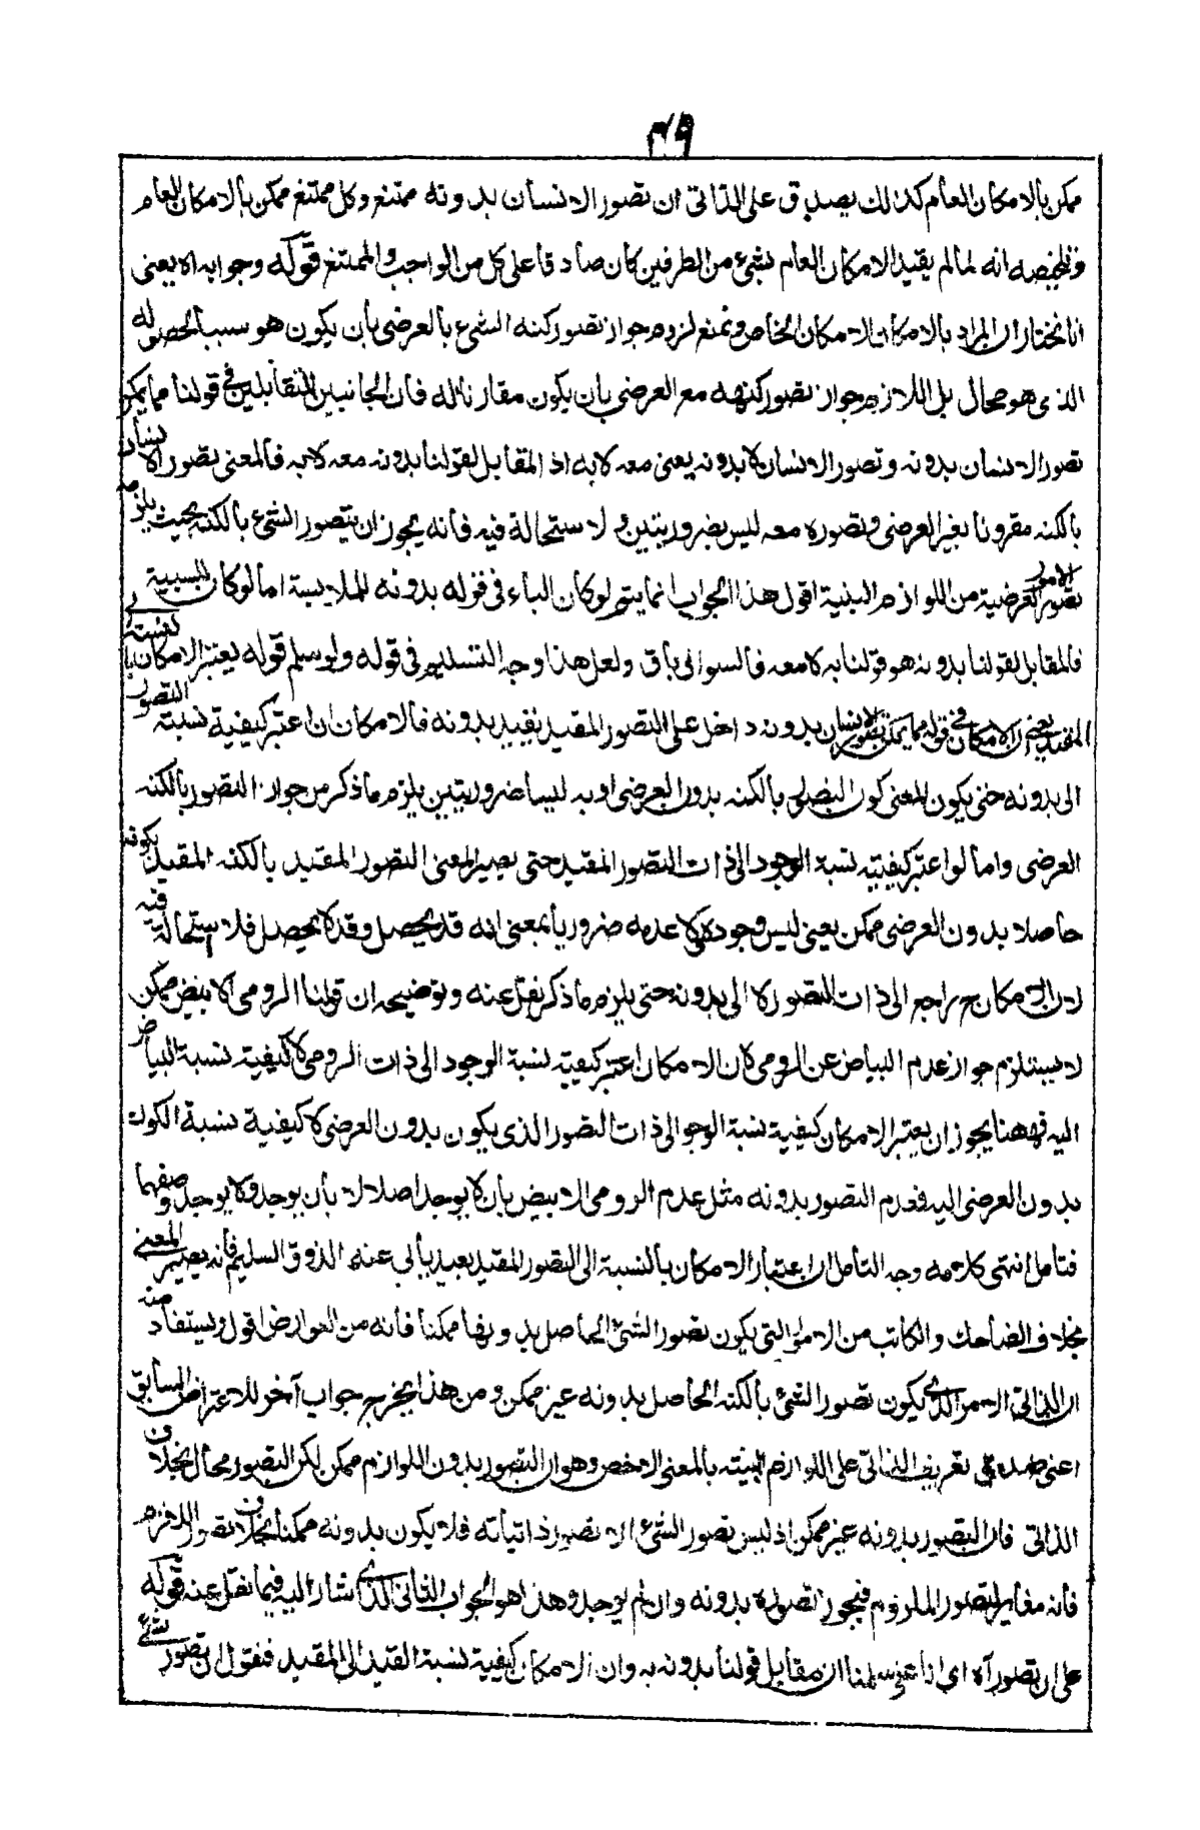 ٣٩
ممكن بالامكان العام كذلك يصدق على الذاتى ان تصور الانسان بدونه ممتنع وكل ممتنع ممكن بالامكان العام
وتلخيصه انه لما لم يقيد الامكان العام بشئ من الطرفين كان صادقا على كل من الواجب والممتنع قوله وجوابه اه يعنى
انا نختار ان المراد بالامكان الامكان الخاص ونمنع لزوم جواز تصور كنه الشئ بالعرضى بان يكون هو سببا لحصوله
الذى هو محال بل اللازم جواز تصور كنهه مع العرضى بان يكون مقارنا له فان الجانبين المتقابلين فى قولنا مما يمكن
تصور الانسان بدونه وتصور الانسان لا بدونه يعنى معه لا به اذ المقابل لقولنا بدونه معه لا به فالمعنى تصور الانسان
بالكنه مقرونا بغير العرضى وتصوره معه ليس بضروريتين ولا ستحالة فيه فانه يجوز ان يتصور الشئ بالكنه بحيث يلزمه
تصور الامور العرضية من اللوازم البينة اقول هذا الجواب انما يتم لو كان الباء فى قوله بدونه للملابسة اما لو كان للسببية
فالمقابل لقولنا بدونه هو قولنا به لا معه فالسوال باق ولعل هذا وجه التسليم فى قوله ولو سلم قوله يعتبر الامكان بالنسبة الى
المقيد يعنى ان الامكان فى قوله مما يمكن تصور الانسان بدونه داخل على التصور المقيد بقيد بدونه فالامكان ان اعتبر كيفية نسبة التصور
الى بدونه حتى يكون المعنى كون التصور بالكنه بدون العرضى او به ليسا ضروريتين يلزم ما ذكر من جواز التصور بالكنه
العرضى واما لو اعتبر كيفيته نسبة الوجود الى ذات التصور المقيد حتى يصير المعنى التصور المقيد بالكنه المقيد بكونه
حاصلا بدون العرضى ممكن يعنى ليس وجوده ولا عدمه ضروريا بمعنى انه قد يحصل وقد لا يحصل فلا استحالة فيه
لان الامكان ح راجع الى ذات التصور لا الى بدونه حتى يلزم ما ذكر نقل عنه وتوضيحه ان قولنا الرومى الابيض ممكن
لا يستلزم جواز عدم البياض عن الرومى لان الامكان اعتبر كيفية نسبة الوجود الى ذات الرومى لا كيفية نسبة البياض
اليه فههنا يجوز ان يعتبر الامكان كيفية نسبة الوجو الى ذات التصور الذى يكون بدون العرضى لا كيفية نسبة الكون
بدون العرضى اليه فعدم التصور بدونه مثل عدم الرومى الابيض بان لا يوجد اصلا لا بان يوجد ولا يوجد وصفهما
فتامل انتهى كلامه وجه التأمل ان اعتبار الامكان بالنسبة الى التصور المقيد بعيد يأبى عنه الذوق السليم فانه يصير المعنى
بخلاف الضاحك والكاتب من الامور التى يكون تصور الشئ الحاصل بدونها ممكنا فانه من العوارض اقول ويستفاد منه
ان الذاتى الامر الذى يكون تصور الشئ بالكنه الحاصل بدونه غير ممكن ومن هذا يخرج جواب آخر للاعتراض السابق
اعنى صدق تعريف الذاتى على اللوازم البينة بالمعنى الاخص وهو ان التصور بدون اللوازم ممكن لكن التصور محال بخلاف
الذاتى فان التصور بدونه غير ممكن اذ ليس تصور الشئ الا تصور ذاتياته فلا يكون بدونه ممكنا بخلاف تصور اللازم
فانه مغاير لتصور الملزوم فيجوز تصوره بدونه وان لم يوجد وهذا هو الجواب الثانى الذى اشار اليه فيما نقل عنه قوله
على ان تصور آه اى انا سلمنا ان مقابل قولنا بدونه به وان الامكان كيفية نسبة القيد الى المقيد فنقول ان تصور شئ